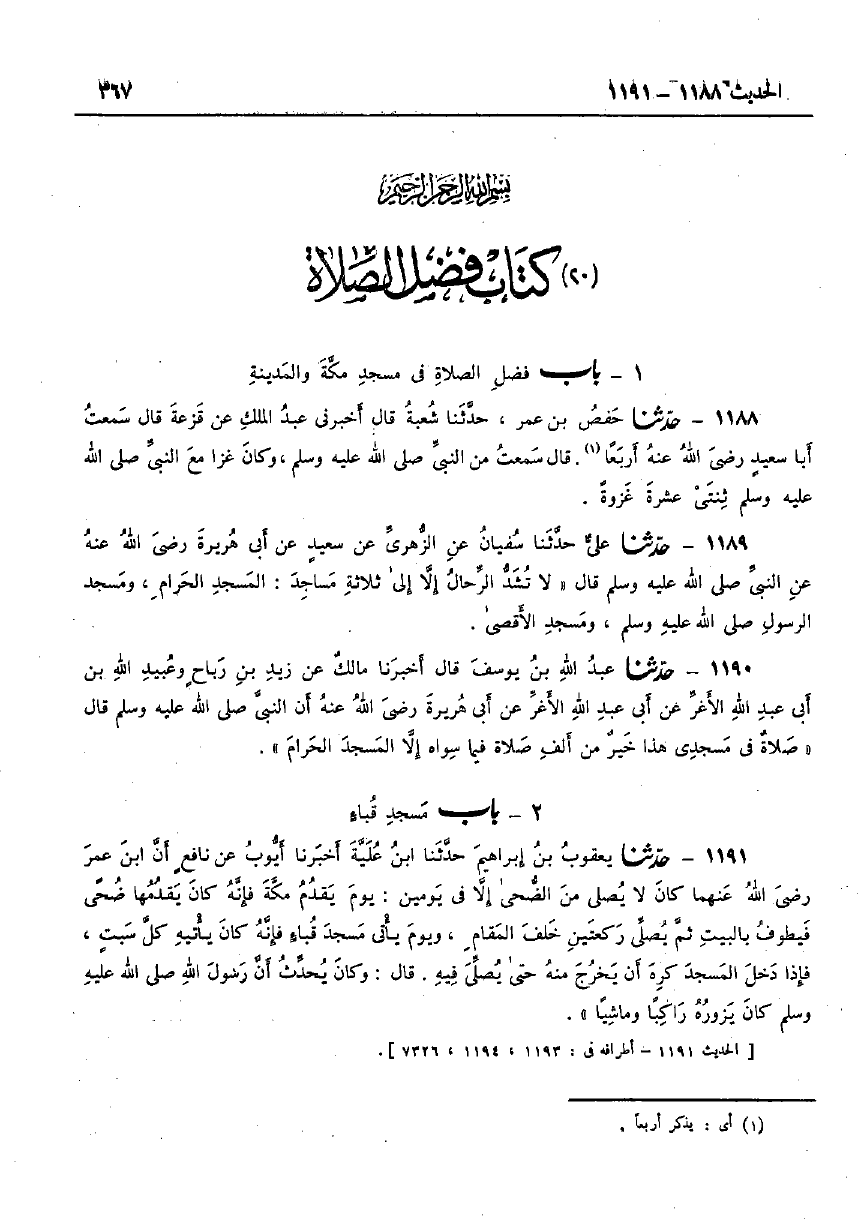 الحديث ١١٨٨ – ١١٩١ ٣٦٧
بسم الله الرحمن الرحيم
(٢٠) كتاب فضل الصلاة
١ – باب فضلِ الصلاةِ فى مسجدِ مكَّةَ والمَدينةِ
١١٨٨ – حدّثنا حَفصُ بن عمر ، حدَّثَنا شُعبةُ قال أخبرنى عبدُ الملكِ عن قَزعةَ قال سَمعتُ
أبا سعيدٍ رضىَ اللهُ عنهُ أربَعًا(١) . قال سَمعتُ من النبىِّ صلى الله عليه وسلم ، وكانَ غزا معَ النبىِّ صلى الله
عليه وسلم ثِنتَىْ عشرةَ غَزوةً .
١١٨٩ – حدّثنا علىٌّ حدَّثَنا سُفيانُ عنِ الزُّهرىِّ عن سعيدٍ عن أبى هُريرةَ رضىَ اللهُ عنهُ
عنِ النبىِّ صلى الله عليه وسلم قال « لا تُشَدُّ الرِّحالُ إلَّا إلى ثلاثةِ مَساجِدَ : المَسجدِ الحَرامِ ، ومَسجد
الرسولِ صلى الله عليهِ وسلم ، ومَسجدِ الأقصىٰ .
١١٩٠ – حدّثنا عبدُ اللهِ بنُ يوسفَ قال أخبرَنا مالكٌ عن زيدِ بنِ رَباحٍ وعُبيدِ اللهِ بن
أبى عبدِ اللهِ الأغرِّ عن أبى عبدِ اللهِ الأغرِّ عن أبى هُريرةَ رضىَ اللهُ عنهُ أن النبىَّ صلى الله عليه وسلم قال
« صَلاةٌ فى مَسجدِى هذا خَيرٌ من ألفِ صَلاة فيما سِواه إلَّا المَسجدَ الحَرامَ » .
٢ – باب مَسجدِ قُباءٍ
١١٩١ – حدّثنا يعقوبُ بنُ إبراهيمَ حدَّثَنا ابنُ عُليَّةَ أخبَرنا أيُّوبُ عن نافعٍ أنَّ ابنَ عمرَ
رضىَ اللهُ عَنهما كانَ لا يُصلى منَ الضُّحىٰ إلَّا فى يَومين : يومَ يَقدُمُ مكَّةَ فإنَّهُ كانَ يَقدُمُها ضُحًى
فَيطوفُ بالبيتِ ثمَّ يُصلِّى رَكعتَينِ خلفَ المَقامِ ، ويومَ يـأتى مَسجدَ قُباءٍ فإنَّهُ كانَ يـأتيهِ كلَّ سَبتٍ ،
فإذا دَخلَ المَسجدَ كرِهَ أن يَخرُجَ منهُ حتىٰ يُصلِّىَ فِيهِ . قال : وكانَ يُحدِّثُ أنَّ رَسُولَ اللهِ صلى الله عليهِ
وسلم كانَ يَزورُهُ رَاكِبًا وماشِيًا » .
[ الحديث ١١٩١ – أطرافه فى : ١١٩٣ ، ١١٩٤ ، ٧٣٢٦ ] .
(١) أى : يذكر أربعاً .